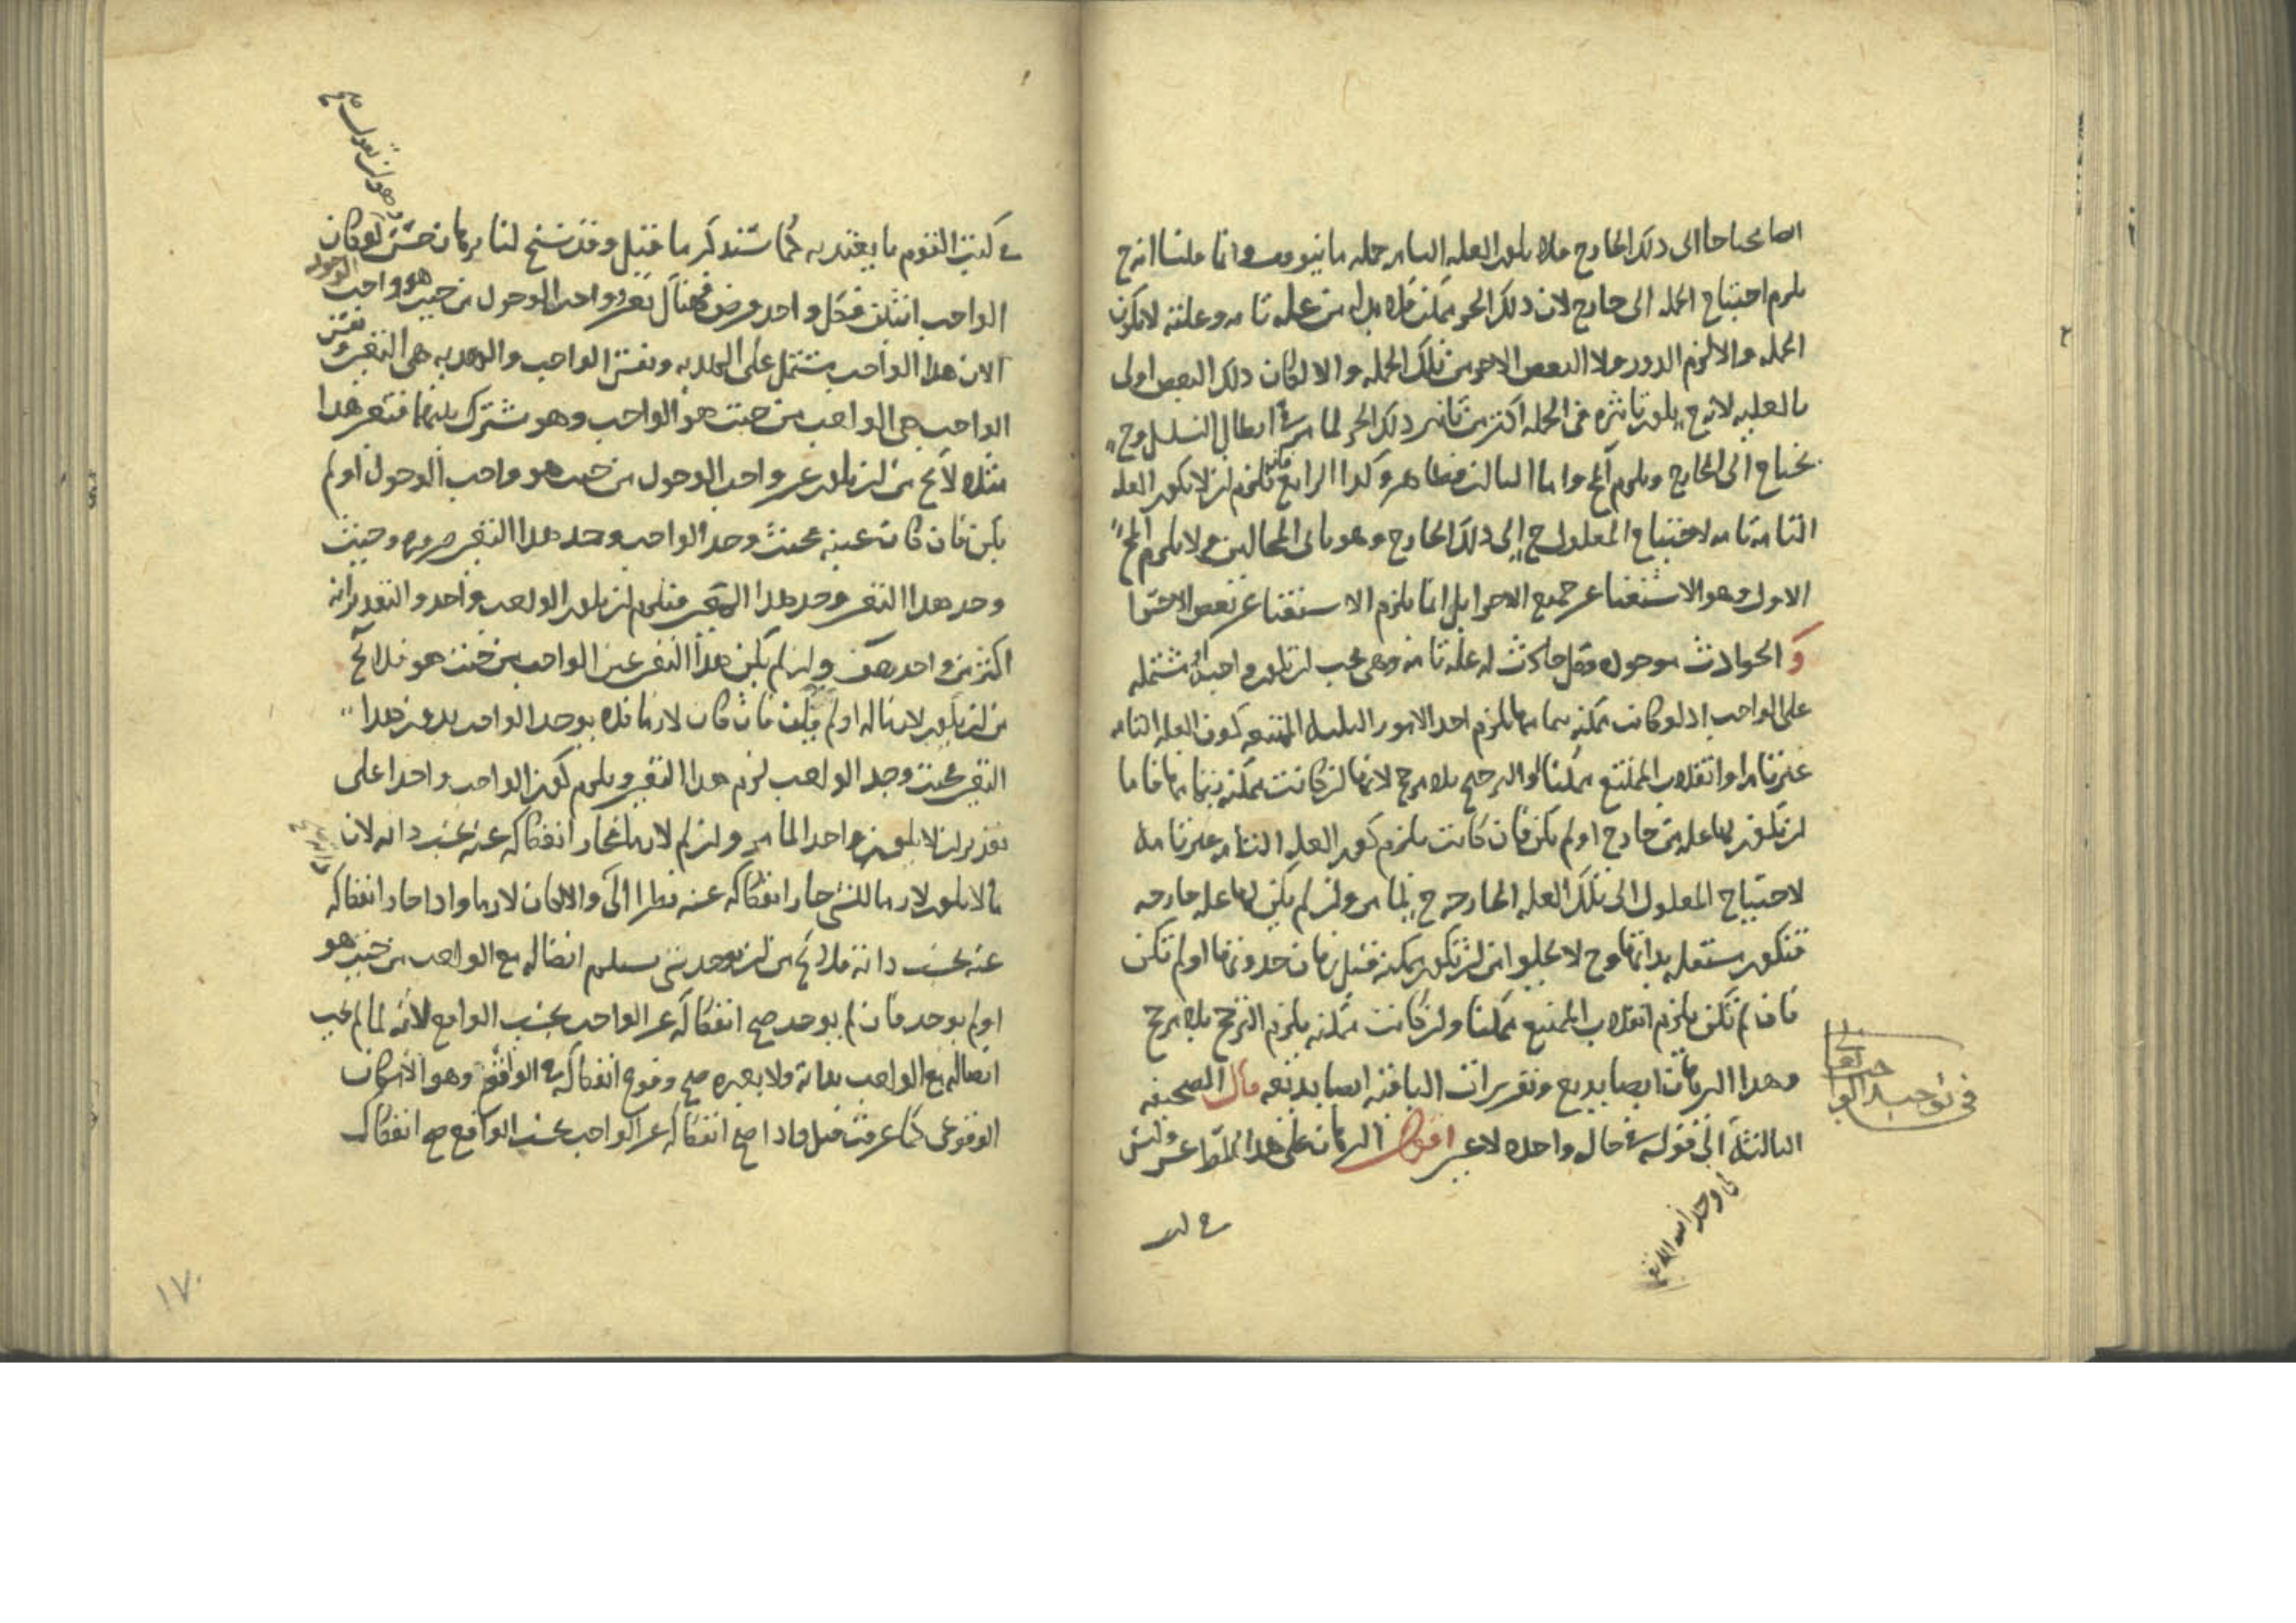 ايضا محتاجا الى ذلك الخارج فلا يكون العلة التامة جملة ما يتوقف وانما قلنا انه ح
يلزم احتياج الجملة الى خارج لان ذلك الجزء ممكن فلا بد له من علة تامة وعلته لا يكون
الجملة والا لزم الدور ولا البعض الاخر من تلك الجملة والا لكان ذلك البعض اولى
بالعلية لانه ح يكون تاثيره في الجملة اكثر من تاثير ذلك الجزء لما مر في ابطال التسلسل وح
يحتاج الى الخارج ويلزم المح واما الثالث فظاهر وكذا الرابع فانه يلزم ان لا يكون العلة
التامة تامة لاحتياج المعلول ح الى ذلك الخارج وهو ثاني المحالين ولا يلزم المح
الاول وهو الاستغنا عن جميع الاجزا بل انما يلزم الاستغنا عن بعض الاجزا
و الحوادث موجودة فكل حادث له علة تامة وهي يجب ان تكون واجبة او مشتملة
على الواجب اذ لو كانت ممكنة بتمامها يلزم احد الامور الثلثة الممتنعة كون العلة التامة
غير تامة او انقلاب الممتنع ممكنا او الترجيح بلا مرجح لانها ان كانت ممكنة بتمامها فاما
ان تكون لها علة من خارج او لم تكن فان كانت يلزم كون العلة التامة غير تامة
لاحتياج المعلول الى تلك العلة الخارجة ح لما مر وان لم يكن لها علة خارجة
فتكون مستقلة بذاتها وح لا يخلوا من ان تكون ممكنة قبل زمان حدوثها او لم تكن
فان لم تكن يلزم انقلاب الممتنع ممكنا وان كانت ممكنة يلزم الترجح بلا مرجح
وهذا البرهان ايضا بديع وتقريرات الباقية ايضا بديعة قال الصحيفة
الثالثة الى قوله في حال واحدة لا غير اقول البرهان على هذا المط عسر وليس
في توحيد الواجب تعالى
في وحدانية الله تع
في كتب
في كتب القوم ما يعتد به كما ستذكر ما قيل وقد سنح لنا برهان حسن لو كان
الواجب اثنين فكل واحد فرض فهناك تعين وواجب الوجود من حيث هو واجب الوجود
لان هذا الواجب مشتمل على الهذية ونفس الواجب والهذية هي التعين ونفس
الواجب هي الواجب من حيث هو الواجب وهو مشترك بينهما فتعين هذا
مثلا لا يخ من ان يكون عين واجب الوجود من حيث هو واجب الوجود او لم
يكن فان كان عينه فحيث وجد الواجب وجد هذا التعين ضرورة وحيث
وجد هذا التعين وجد هذا المتعين فيلزم ان يكون الواجب واحدا والتقدير انه
اكثر من واحد هف وان لم يكن هذا التعين عين الواجب من حيث هو فلا يخ
من ان يكون لازما له او لم يكن فان كان لازما فلا يوجد الواجب بدون هذا
التعين فحيث وجد الواجب لزم هذا التعين ويلزم كون الواجب واحدا على
تقدير ان لا يكون واحدا لما مر وان لم يكن لازما فجاز انفكاكه عنه بحسب ذاته لان
ما لا يكون لازما للشي جاز انفكاكه عنه نظرا اليه والا لكان لازما واذا جاز انفكاكه
عنه بحسب ذاته فلا يخ من ان يوجد شي يستلزم اتصاله مع الواجب من حيث هو
او لم يوجد فان لم يوجد صح انفكاكه عن الواجب بحسب الواقع لانه لما لم يجب
اتصاله مع الواجب بذاته ولا بغيره صح وقوع انفكاكه في الواقع وهو الامكان
الوقوعي كما عرفت قبل واذا صح انفكاكه عن الواجب بحسب الواقع صح انفكاك
١٧